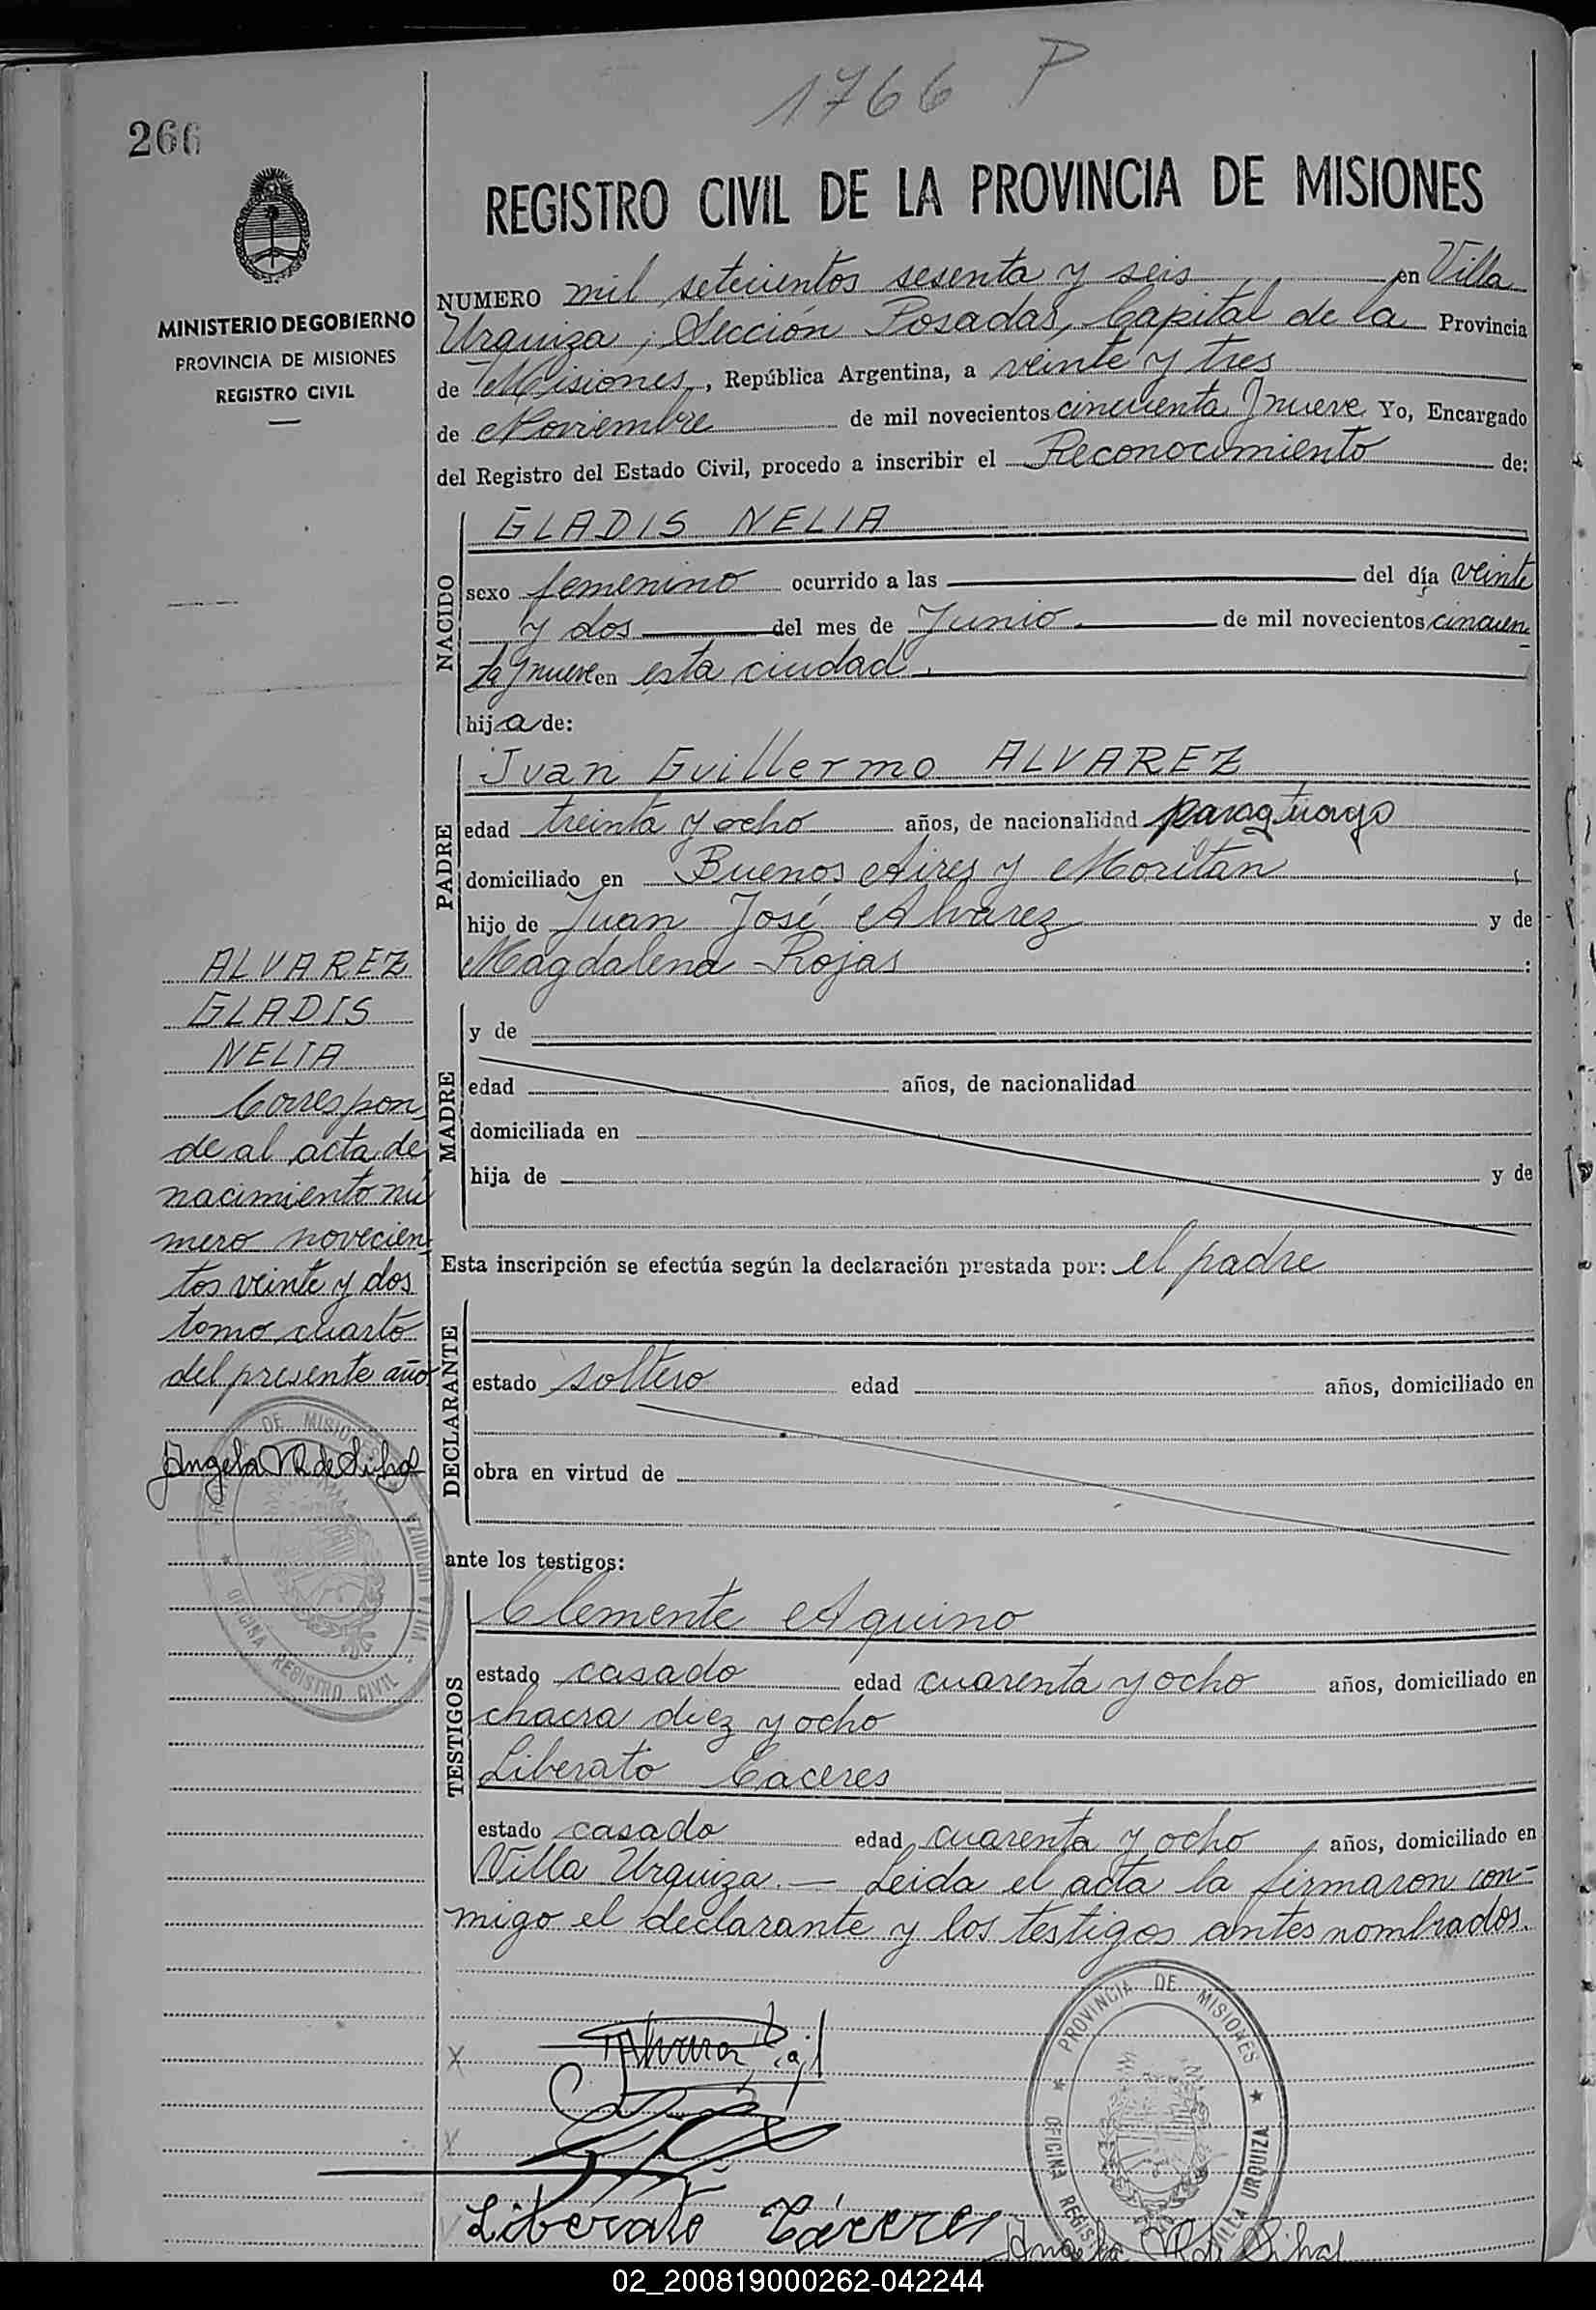 1766 P
266
REGISTRO CIVIL DE LA PROVINCIA DE MISIONES
MINISTERIO DE GOBIERNO
PROVINCIA DE MISIONES
REGISTRO CIVIL
NUMERO mil setecientos sesenta y seis en Villa
Urquiza, Sección Posadas, Capital de la Provincia
de Misiones, República Argentina, a veinte y tres
de Noviembre de mil novecientos cincuenta y nueve Yo, Encargado
del Registro del Estado Civil, procedo a inscribir el Reconocimiento de:
NACIDO
GLADIS NELIA
sexo femenino ocurrido a las del día veinte
y dos del mes de Junio de mil novecientos cincuen
ta y nueve en esta ciudad.
hija de:
PADRE
Juan Guillermo ALVAREZ
edad treinta y ocho años, de nacionalidad paraguayo
domiciliado en Buenos Aires y Moritan
hijo de Juan José Alvarez y de
Magdalena Rojas :
MADRE
y de
edad años, de nacionalidad
domiciliada en
hija de y de
Esta inscripción se efectúa según la declaración prestada por: el padre
DECLARANTE
estado soltero edad años, domiciliado en
obra en virtud de
ante los testigos:
TESTIGOS
Clemente Aquino
estado casado edad cuarenta y ocho años, domiciliado en
chacra diez y ocho
Liberato Caceres
estado casado edad cuarenta y ocho años, domiciliado en
Villa Urquiza. — Leida el acta la firmaron con-
migo el declarante y los testigos antes nombrados.
ALVAREZ
GLADIS
NELIA
Correspon
de al acta de
nacimiento nú
mero novecien
tos veinte y dos
tomo cuarto
del presente año
DE MISIONES
VILLA URQUIZA
OFICINA REGISTRO CIVIL
Angela R de
PROVINCIA DE MISIONES
OFICINA REGIS VILLA URQUIZA
Liberato Cáceres
Angela R de
02_200819000262-042244